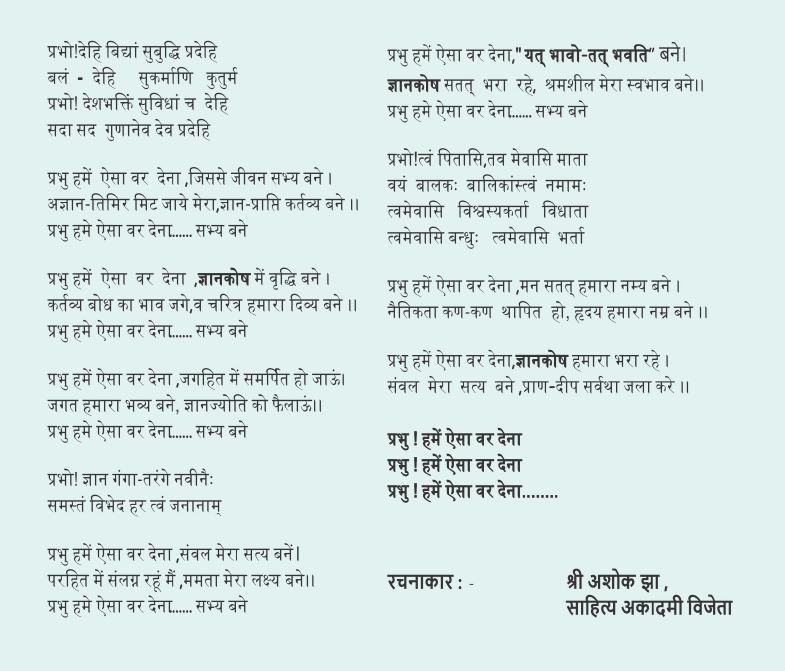 प्रभो!देहि बिद्यां सुबुद्धि प्रदेहि
बलं - देहि सुकर्माणि कुतुर्म
प्रभो! देशभक्तिं सुविधां च देहि
सदा सद गुणानेव देव प्रदेहि
प्रभु हमें ऐसा वर देना ,जिससे जीवन सभ्य बने ।
अज्ञान-तिमिर मिट जाये मेरा,ज्ञान-प्राप्ति कर्तव्य बने ।।
प्रभु हमे ऐसा वर देना...... सभ्य बने
प्रभु हमें ऐसा वर देना ,ज्ञानकोष में वृद्धि बने ।
कर्तव्य बोध का भाव जगे,व चरित्र हमारा दिव्य बने ।।
प्रभु हमे ऐसा वर देना...... सभ्य बने
प्रभु हमें ऐसा वर देना ,जगहित में समर्पित हो जाऊं।
जगत हमारा भव्य बने, ज्ञानज्योति को फैलाऊं।।
प्रभु हमे ऐसा वर देना...... सभ्य बने
प्रभो! ज्ञान गंगा-तरंगे नवीनैः
समस्तं विभेद हर त्वं जनानाम्
प्रभु हमें ऐसा वर देना ,संवल मेरा सत्य बनें।
परहित में संलग्न रहूं मैं ,ममता मेरा लक्ष्य बने।।
प्रभु हमे ऐसा वर देना...... सभ्य बने
प्रभु हमें ऐसा वर देना," यत् भावो-तत् भवति" बने।
ज्ञानकोष सतत् भरा रहे, श्रमशील मेरा स्वभाव बने।।
प्रभु हमे ऐसा वर देना...... सभ्य बने
प्रभो!त्वं पितासि,तव मेवासि माता
वयं बालकः बालिकांस्त्वं नमामः
त्वमेवासि विश्वस्यकर्ता विधाता
त्वमेवासि बन्धुः त्वमेवासि भर्ता
प्रभु हमें ऐसा वर देना ,मन सतत् हमारा नम्य बने ।
नैतिकता कण-कण थापित हो, हृदय हमारा नम्र बने ।।
प्रभु हमें ऐसा वर देना,ज्ञानकोष हमारा भरा रहे ।
संवल मेरा सत्य बने ,प्राण-दीप सर्वथा जला करे ।।
प्रभु ! हमें ऐसा वर देना
प्रभु ! हमें ऐसा वर देना
प्रभु ! हमें ऐसा वर देना........
रचनाकार : - श्री अशोक झा ,
साहित्य अकादमी विजेता